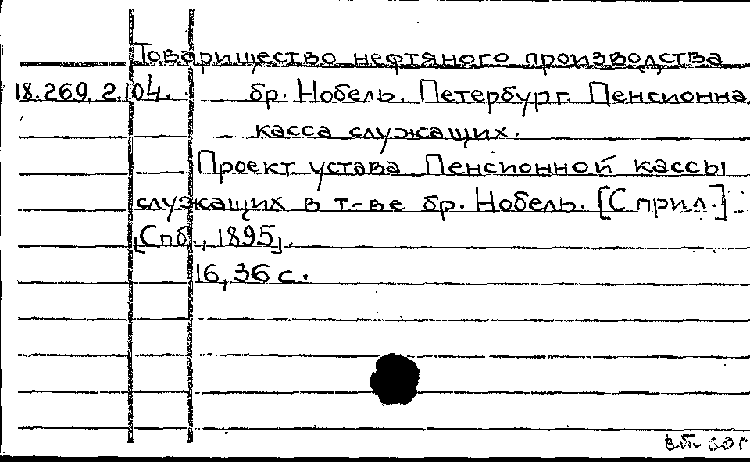 Товарищество нефтяного производства
18.269.2.104. бр. Нобель. Петербург. Пенсионна
касса служащих.
Проект устава Пенсионной кассы
служащих в т-ве бр. Нобель. [С прил.]
[Спб., 1895].
16,36 с.